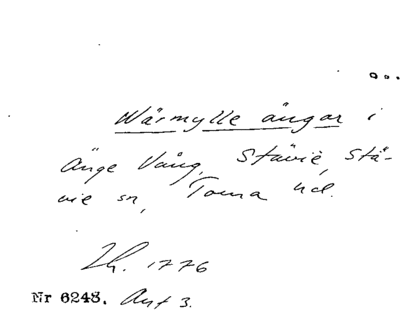 Wärmylle ängar i
Änge Vång, Stävie, Stä-
vie sn, Torna hd.
Lh. 1776
Nr 6248. Akt 3.